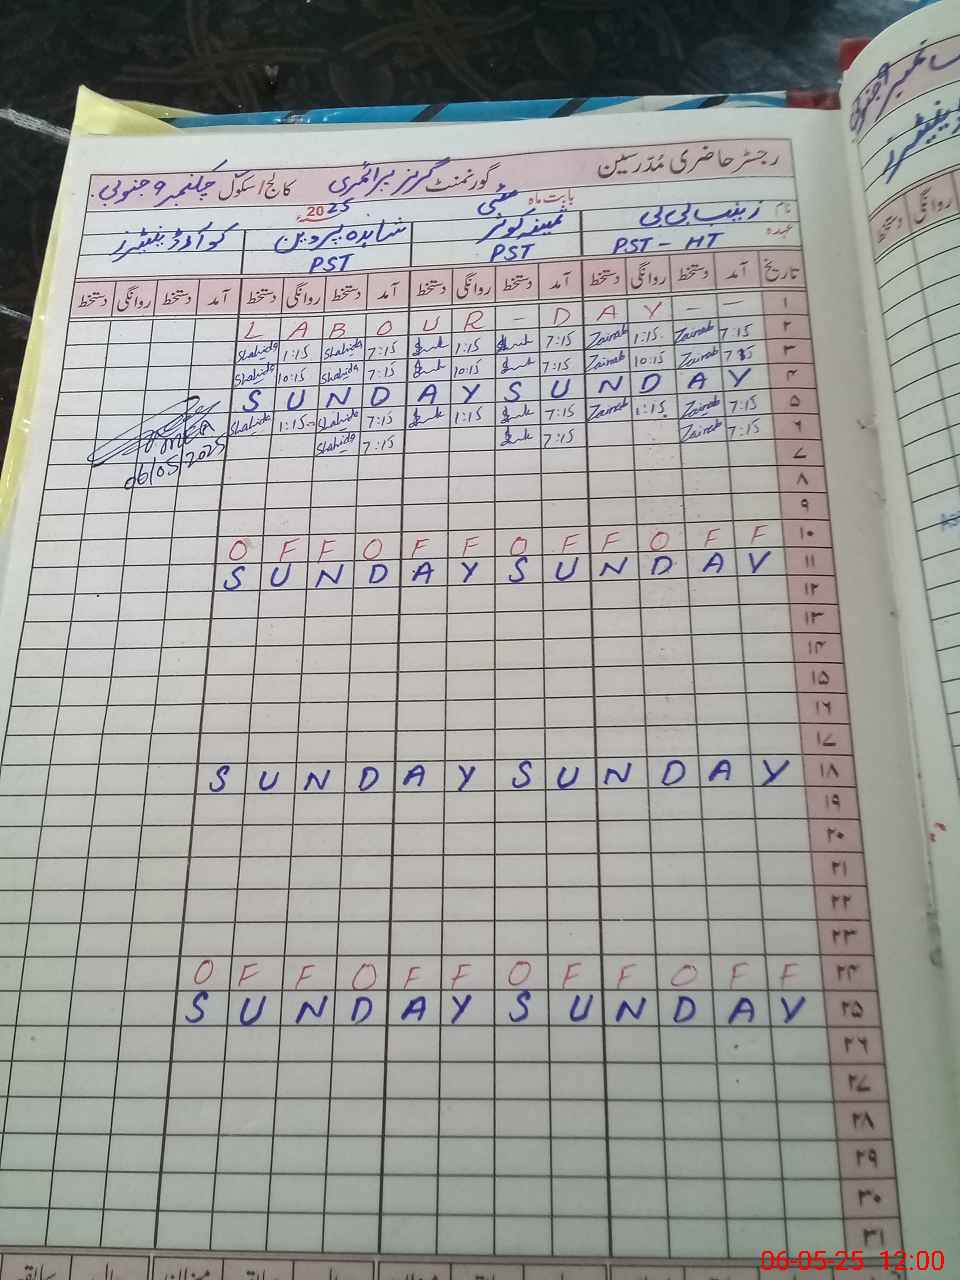 رجسٹر حاضری مُدرّسین
گورنمنٹ گرلز پرائمری کالج / سکول چکنمبر ۹ جنوبی
بابت ماہ مئی 2025ء
نام زینب بی بی ثمینہ کوثر شاہدہ پروین کوآرڈینیٹرز
عہدہ PST - HT PST PST
تاریخ آمد دستخط روانگی دستخط آمد دستخط روانگی دستخط آمد دستخط روانگی دستخط آمد دستخط روانگی دستخط
۱ L A B O U R - D A Y - -
۲ 7:15 Zainab 1:15 Zainab 7:15 1:15 7:15 Shahida 1:15 Shahida
۳ Zainab 10:15 Zainab 7:15 10:15 7:15 Shahida 10:15 Shahida
۴ S U N D A Y S U N D A Y
۵ 7:15 Zainab 1:15 Zainab 7:15 1:15 7:15 Shahida 1:15 Shahida
۶ 7:15 Zainab 7:15 7:15 Shahida
06/05/2025
۷
۸
۹
۱۰ O F F O F F O F F O F F
۱۱ S U N D A Y S U N D A Y
۱۲
۱۳
۱۴
۱۵
۱۶
۱۷
۱۸ S U N D A Y S U N D A Y
۱۹
۲۰
۲۱
۲۲
۲۳
۲۴ O F F O F F O F F O F F
۲۵ S U N D A Y S U N D A Y
۲۶
۲۷
۲۸
۲۹
۳۰
۳۱
06-05-25 12:00